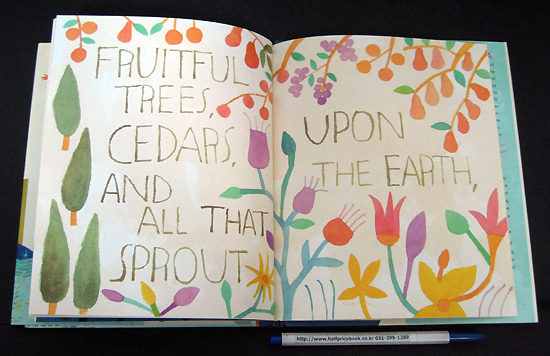 FRUITFUL
TREES,
CEDARS,
AND
ALL THAT
SPROUT
UPON
THE EARTH,
http://www.halfpricebook.co.kr 031-399-1289